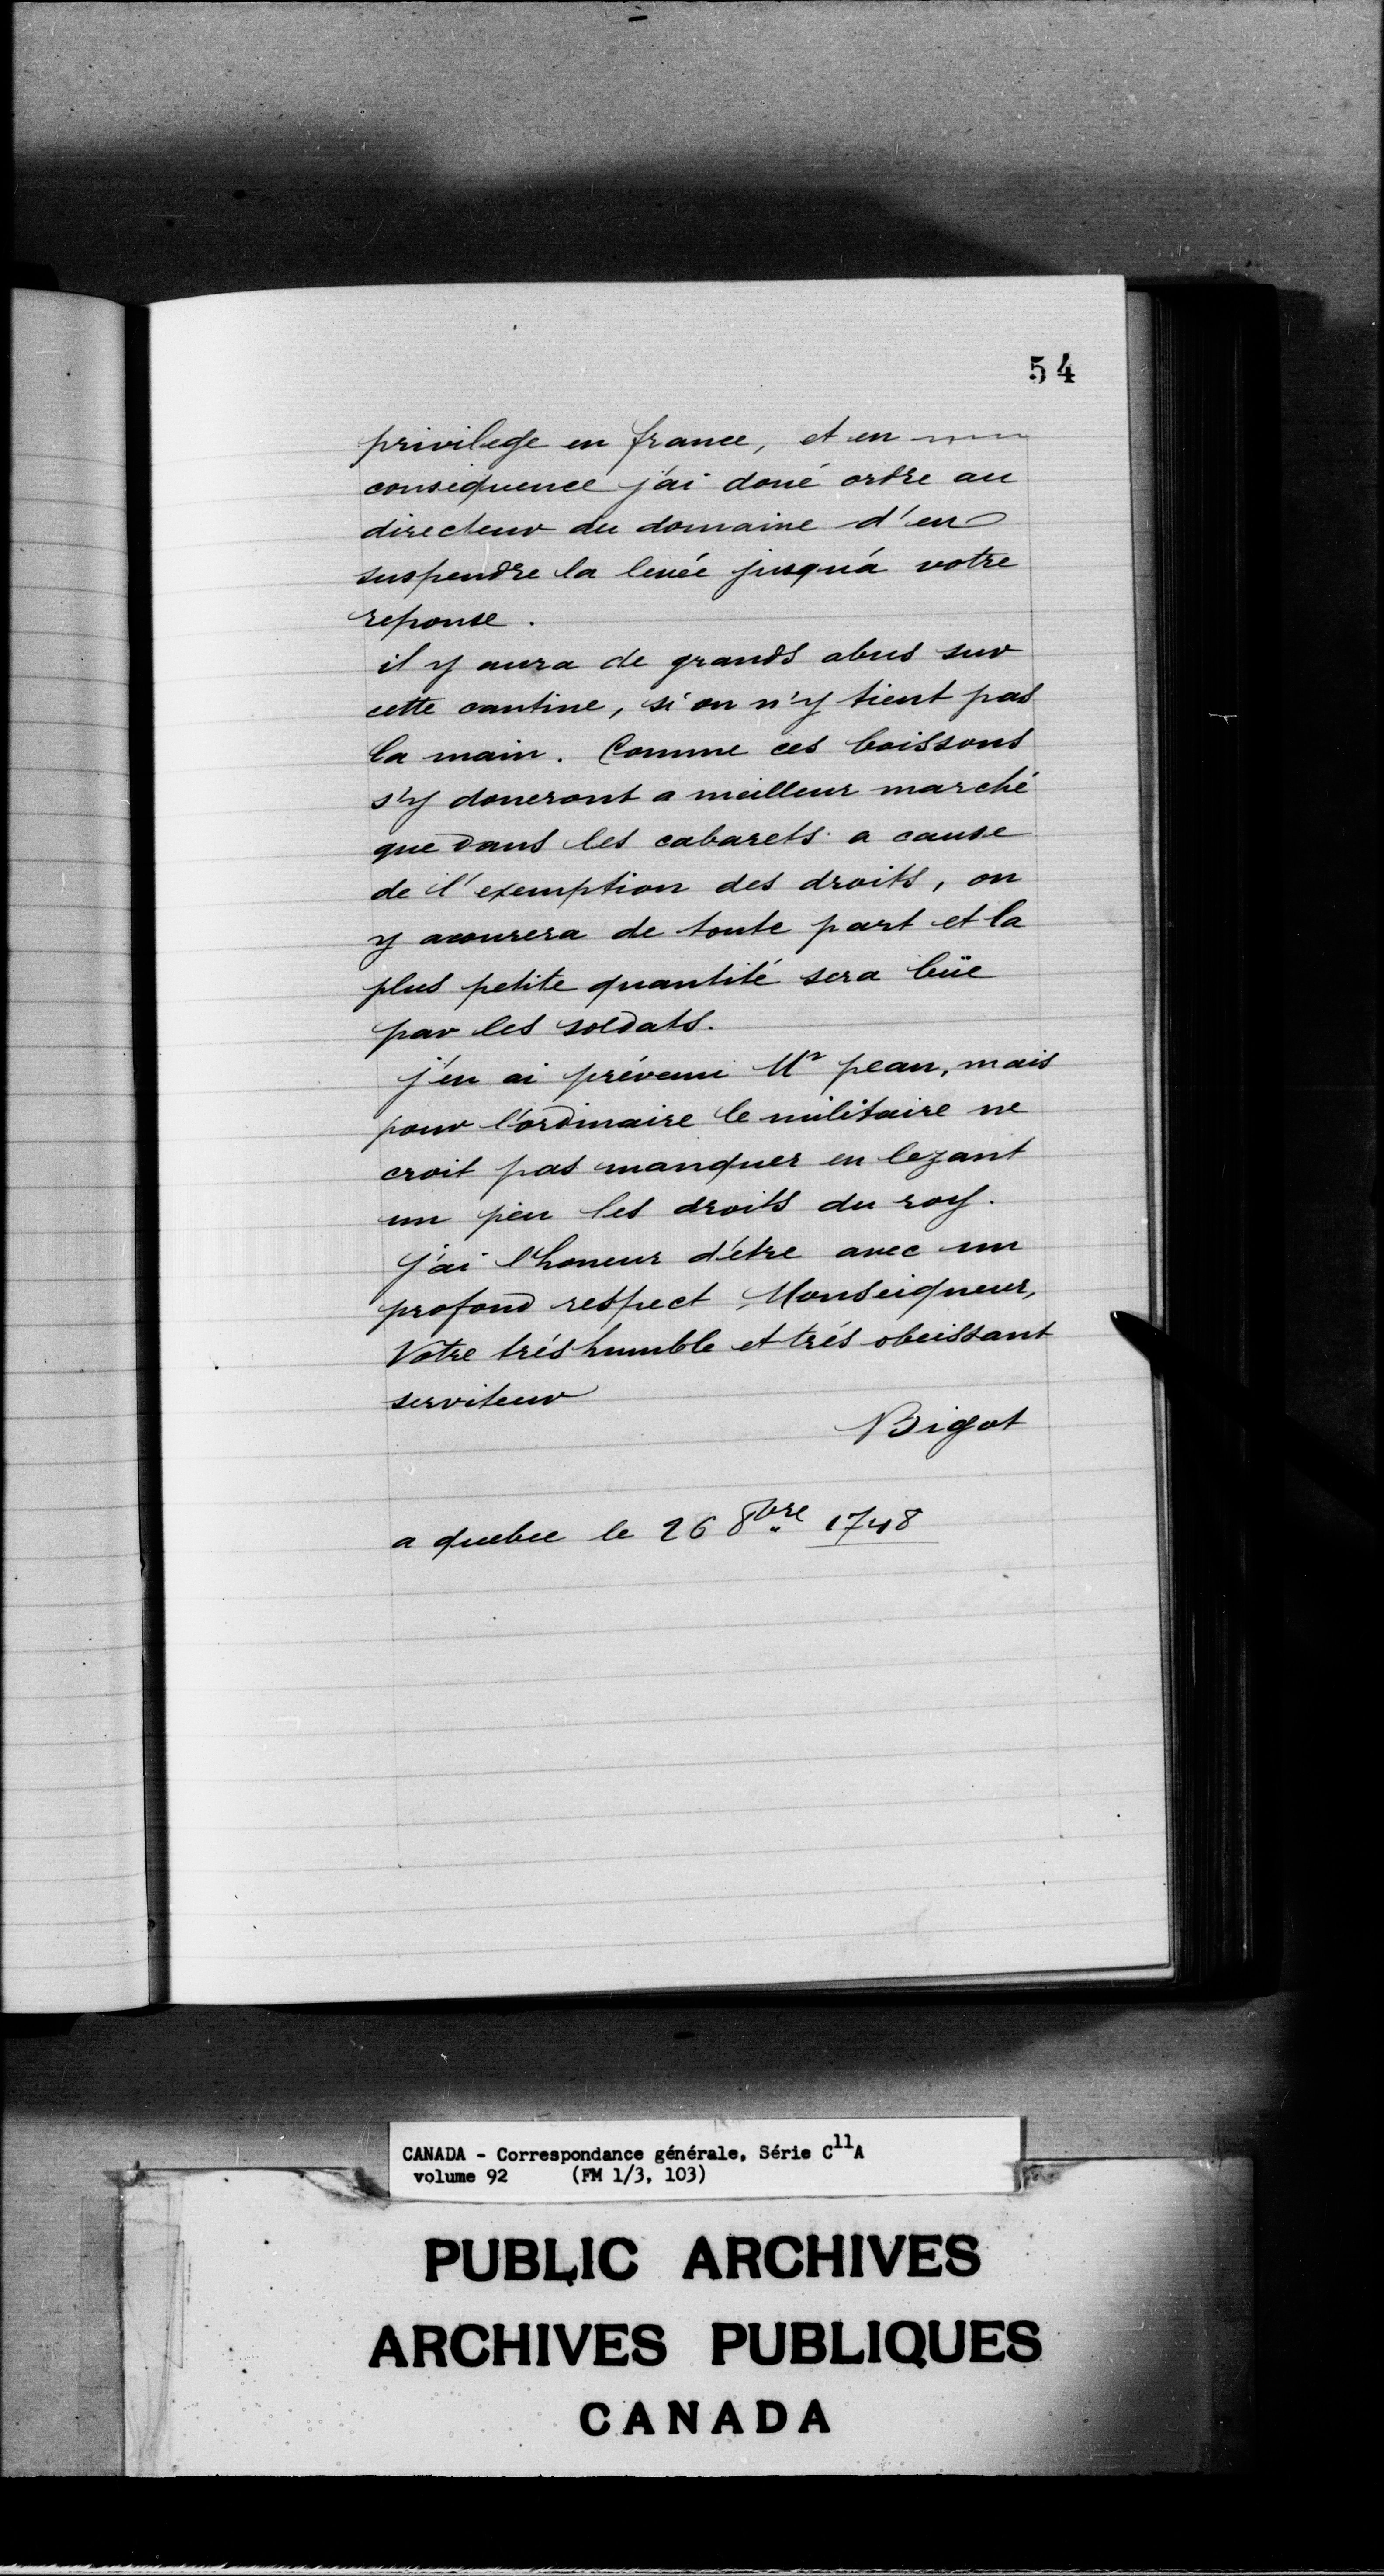 54
privilege en france, et en
consequence j'ai doné ordre au
directeur du domaine d'en
suspendre la levée jusqu'á votre
reponse.
il y aura de grands abus sur
cette cantine, si on n'y tient pas
la main. Comme ces boissons
s'y doneront a meilleur marché
que dans les cabarets a cause
de l'exemption des droits, on
y acourera de toute part et la
plus petite quantité sera büe
par les soldats.
j'en ai prévenu Mr pean, mais
pour l'ordinaire le militaire ne
croit pas manquer en lezant
un peu les droits du roy.
j'ai l'honeur d'etre avec un
profond respect Monseigneur,
Votre trés humble et trés obeissant
serviteur
Bigot
a quebec le 26 8bre 1748
CANADA - Correspondance générale, Série C11A
volume 92 (FM 1/3, 103)
PUBLIC ARCHIVES
ARCHIVES PUBLIQUES
CANADA